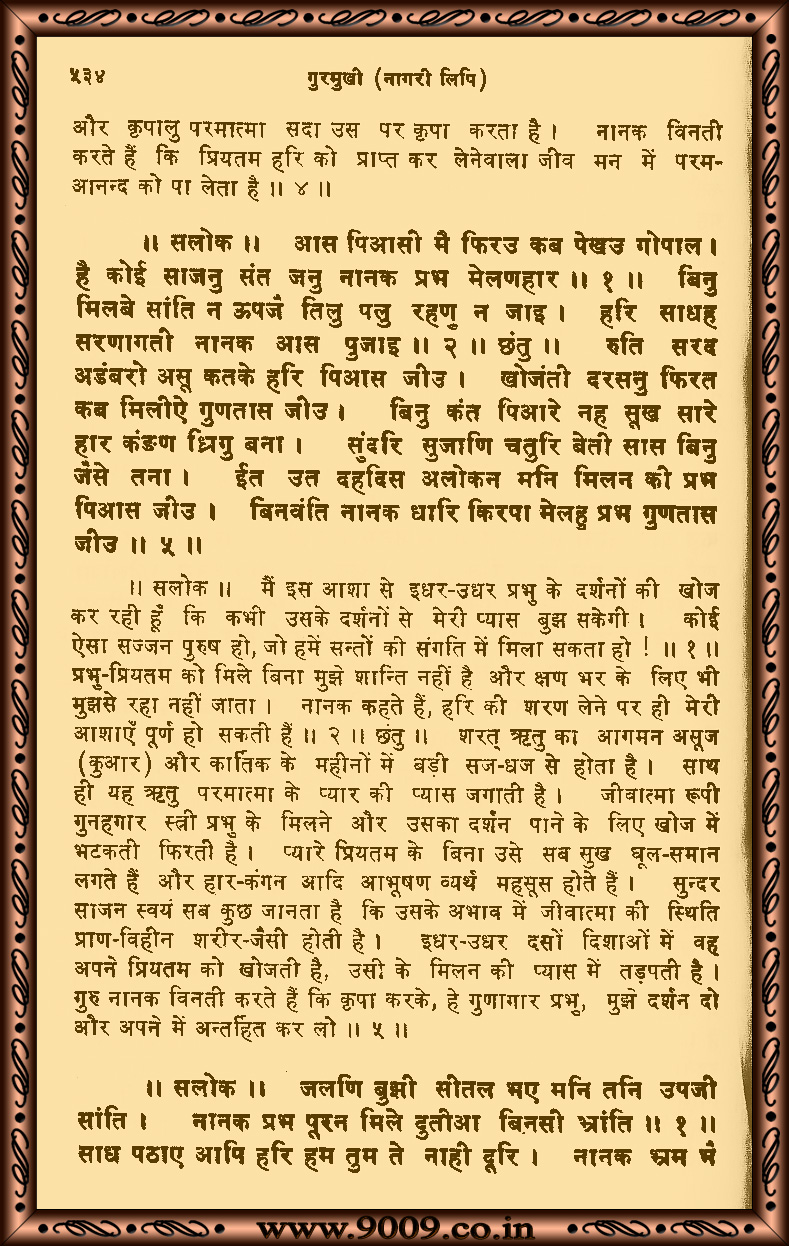 ५३४ गुरमुखी (नागरी लिपि)
और कृपालु परमात्मा सदा उस पर कृपा करता है। नानक विनती
करते हैं कि प्रियतम हरि को प्राप्त कर लेनेवाला जीव मन में परम-
आनन्द को पा लेता है ॥ ४ ॥
॥ सलोक ॥ आस पिआसी मै फिरउ कब पेखउ गोपाल।
है कोई साजनु संत जनु नानक प्रभ मेलणहार ॥ १ ॥ बिनु
मिलबे सांति न ऊपजै तिलु पलु रहणु न जाइ। हरि साधह
सरणागती नानक आस पुजाइ ॥ २ ॥ छंतु ॥ रुति सरद
अडंबरो असू कतके हरि पिआस जीउ। खोजंती दरसनु फिरत
कब मिलीऐ गुणतास जीउ। बिनु कंत पिआरे नह सूख सारे
हार कंङण ध्रिगु बना। सुंदरि सुजाणि चतुरि बेती सास बिनु
जैसे तना। ईत उत दहदिस अलोकन मनि मिलन की प्रभ
पिआस जीउ। बिनवंति नानक धारि किरपा मेलहु प्रभ गुणतास
जीउ ॥ ५ ॥
॥ सलोक ॥ मैं इस आशा से इधर-उधर प्रभु के दर्शनों की खोज
कर रही हूँ कि कभी उसके दर्शनों से मेरी प्यास बुझ सकेगी। कोई
ऐसा सज्जन पुरुष हो, जो हमें सन्तों की संगति में मिला सकता हो ! ॥ १ ॥
प्रभु-प्रियतम को मिले बिना मुझे शान्ति नहीं है और क्षण भर के लिए भी
मुझसे रहा नहीं जाता। नानक कहते हैं, हरि की शरण लेने पर ही मेरी
आशाएँ पूर्ण हो सकती हैं ॥ २ ॥ छंतु ॥ शरत् ऋतु का आगमन असूज
(कुआर) और कार्तिक के महीनों में बड़ी सज-धज से होता है। साथ
ही यह ऋतु परमात्मा के प्यार की प्यास जगाती है। जीवात्मा रूपी
गुनहगार स्त्री प्रभु के मिलने और उसका दर्शन पाने के लिए खोज में
भटकती फिरती है। प्यारे प्रियतम के बिना उसे सब सुख धूल-समान
लगते हैं और हार-कंगन आदि आभूषण व्यर्थ महसूस होते हैं। सुन्दर
साजन स्वयं सब कुछ जानता है कि उसके अभाव में जीवात्मा की स्थिति
प्राण-विहीन शरीर-जैसी होती है। इधर-उधर दसों दिशाओं में वह
अपने प्रियतम को खोजती है, उसी के मिलन की प्यास में तड़पती है।
गुरु नानक विनती करते हैं कि कृपा करके, हे गुणागार प्रभु, मुझे दर्शन दो
और अपने में अन्तर्हित कर लो ॥ ५ ॥
॥ सलोक ॥ जलणि बुझी सीतल भए मनि तनि उपजी
सांति। नानक प्रभ पूरन मिले दुतीआ बिनसी भ्रांति ॥ १ ॥
साध पठाए आपि हरि हम तुम ते नाही दूरि। नानक भ्रम भै
www.9009.co.in